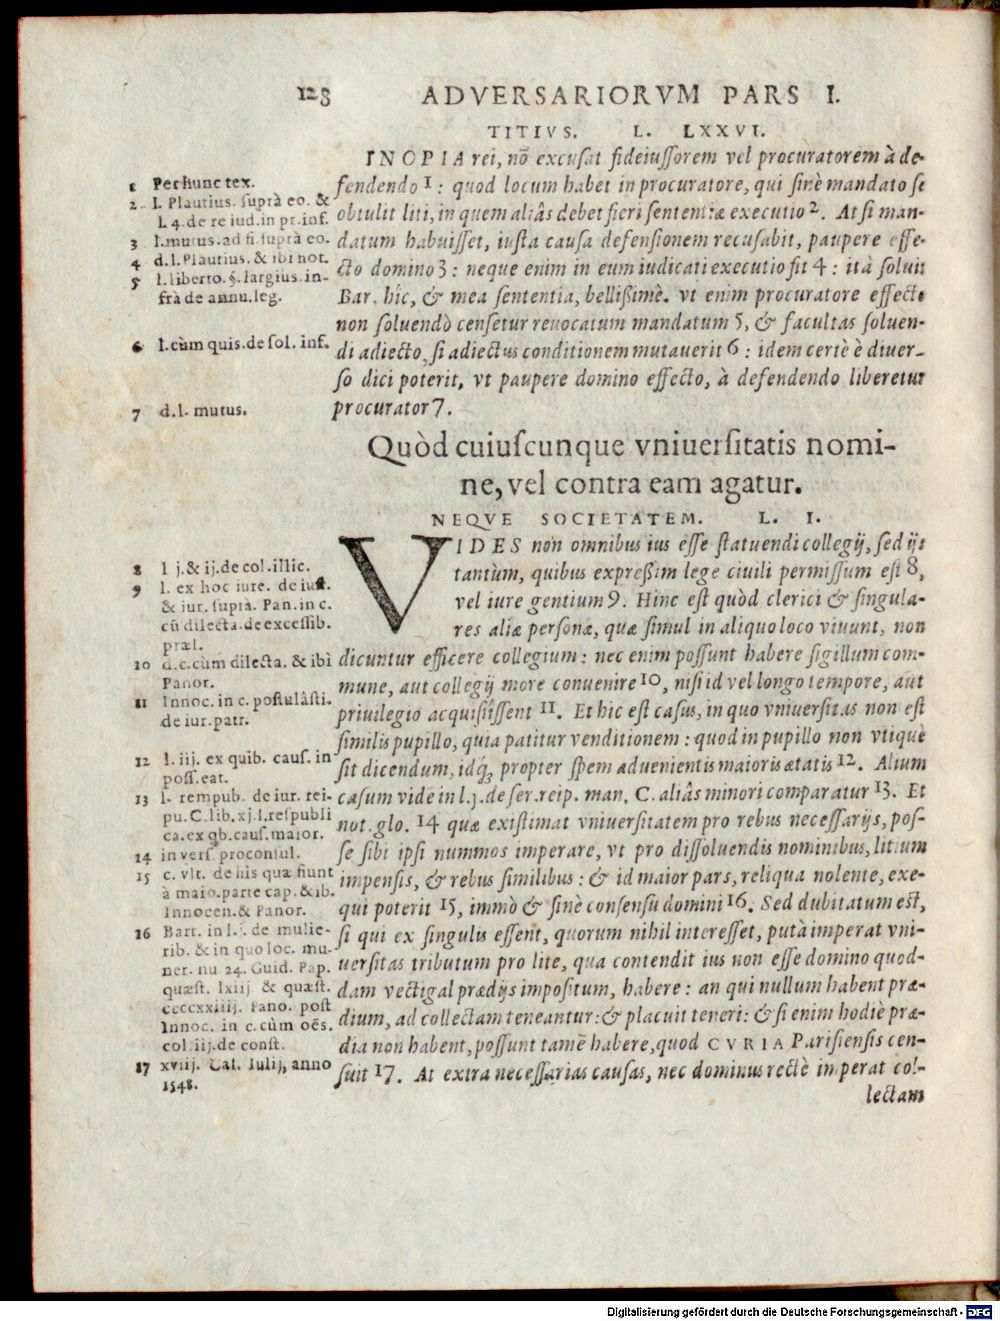 128 ADVERSARIORVM PARS I.
TITIVS. L. LXXVI.
INOPIA rei, nō excusat fideiussorem vel procuratorem à de-
fendendo 1 : quod locum habet in procuratore, qui sinè mandato se
obtulit liti, in quem aliâs debet fieri sententiæ executio 2. At si man-
datum habuisset, iusta causa defensionem recusabit, paupere effe-
cto domino 3 : neque enim in eum iudicati executio fit 4 : ità soluit
Bar. hîc, & mea sententia, bellißimè. vt enim procuratore effecto
non soluendò censetur reuocatum mandatum 5, & facultas soluen-
di adiecto, si adiectus conditionem mutauerit 6 : idem certè è diuer-
so dici poterit, vt paupere domino effecto, à defendendo liberetur
procurator 7.
1 Per hunc tex.
2 l. Plautius. suprà eo. &
l. 4. de re iud. in pr. inf.
3 l. mutus. ad fi. suprà eo.
4 d. l. Plautius. & ibi not.
5 l. liberto. §. largius. in-
frà de annu. leg.
6 l. cùm quis. de sol. inf.
7 d. l. mutus.
Quòd cuiuscunque vniuersitatis nomi-
ne, vel contra eam agatur.
NEQVE SOCIETATEM. L. I.
VIDES non omnibus ius esse statuendi collegij, sed ijs
tantùm, quibus expreßim lege ciuili permissum est 8,
vel iure gentium 9. Hinc est quòd clerici & singula-
res aliæ personæ, quæ simul in aliquo loco viuunt, non
dicuntur efficere collegium : nec enim possunt habere sigillum com-
mune, aut collegij more conuenire 10, nisi id vel longo tempore, aut
priuilegio acquisiissent 11. Et hic est casus, in quo vniuersitas non est
similis pupillo, quia patitur venditionem : quod in pupillo non vtique
sit dicendum, idq́; propter spem aduenientis maioris ætatis 12. Alium
casum vide in l. j. de ser. reip. man. C. aliâs minori comparatur 13. Et
not. glo. 14 quæ existimat vniuersitatem pro rebus necessarijs, pos-
se sibi ipsi nummos imperare, vt pro dissoluendis nominibus, litium
impensis, & rebus similibus : & id maior pars, reliqua nolente, exe-
qui poterit 15, immò & sinè consensu domini 16. Sed dubitatum est,
si qui ex singulis essent, quorum nihil interesset, putà imperat vni-
uersitas tributum pro lite, qua contendit ius non esse domino quod-
dam vectigal prædijs impositum, habere : an qui nullum habent præ-
dium, ad collectam teneantur : & placuit teneri : & si enim hodiè præ-
dia non habent, possunt tamē habere, quod CVRIA Parisiensis cen-
suit 17. At extra necessarias causas, nec dominus rectè imperat col-
lectam
8 l. j. & ij. de col. illic.
9 l. ex hoc iure. de iust.
& iur. suprà. Pan. in c.
cū dilecta. de excessib.
præl.
10 d. c. cùm dilecta. & ibì
Panor.
11 Innoc. in c. postulâsti.
de iur. patr.
12 l. iij. ex quib. caus. in
poss. eat.
13 l. rempub. de iur. rei-
pu. C. lib. xj. l. respubli
ca. ex qb. caus. maior.
14 in vers. proconsul.
15 c. vlt. de his quæ fiunt
à maio. parte cap. & ib.
Innocen. & Panor.
16 Bart. in l. j. de mulie-
rib. & in quo loc. mu-
ner. nu 24. Guid. Pap.
quæst. lxiij & quæst.
ccccxxiiij. Pano. post
Innoc. in c. cùm oēs.
col. iij. de const.
17 xviij. Cal. Iulij, anno
1548.
Digitalisierung gefördert durch die Deutsche Forschungsgemeinschaft - DFG